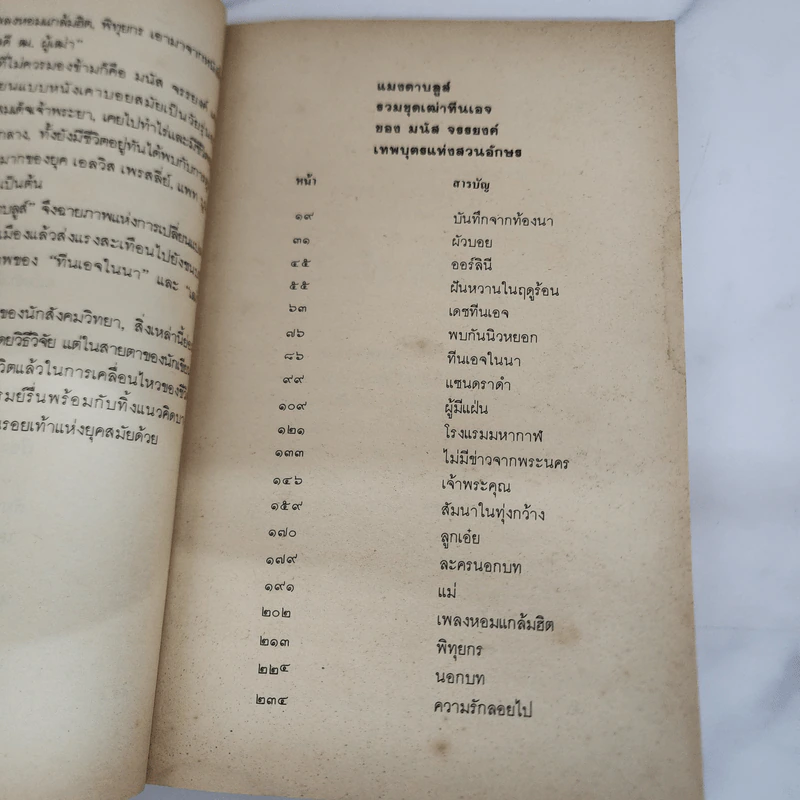 เพลงหอมแก้มฮิต, พิทุยกร เอามาจากหนัง
ผู้เฒ่า"
ที่ไม่ควรมองข้ามก็คือ มนัส จรรยงค์
ยนแบบหนังเคาบอยสมัยเป็นวัยรุ่น
มเด็จเจ้าพระยา, เคยไปทำไร่และมีชีวิต
กลาง. ทั้งยังมีชีวิตอยู่ทันได้พบกับการ
มากของยุค เอลวิส เพรสลี่ย์, แพท
เป็นต้น
บลูส์" จึงฉายภาพแห่งการเปลี่ยนแปลง
เมืองแล้วส่งแรงสะเทือนไปยังชนบท
พของ "ทีนเอจในนา" และ
ของนักสังคมวิทยา, สิ่งเหล่านี้
ดยวิธีวิจัย แต่ในสายตาของนักเขียน
วิตแล้วในการเคลื่อนไหวของชีวิต
รมย์รื่นพร้อมกับทิ้งแนวคิด
นรอยเท้าแห่งยุคสมัยด้วย
แมงดาบลูส์
รวมชุดเฒ่าทีนเอจ
ของ มนัส จรรยงค์
เทพบุตรแห่งสวนอักษร
หน้า สารบัญ
๑๙ บันทึกจากท้องนา
๓๑ ผัวบอย
๔๕ ออร์ลินี
๕๕ ฝันหวานในฤดูร้อน
๖๓ เดชทีนเอจ
๗๖ พบกันนิวหยอก
๘๖ ทีนเอจในนา
๙๙ แซนดราดำ
๑๐๙ ผู้มีแฝ่น
๑๒๑ โรงแรมมหากาฬ
๑๓๓ ไม่มีข่าวจากพระนคร
๑๔๖ เจ้าพระคุณ
๑๕๙ สัมนาในทุ่งกว้าง
๑๗๐ ลูกเอ๋ย
๑๗๙ ละครนอกบท
๑๙๑ แม่
๒๐๒ เพลงหอมแกล้มฮิต
๒๑๓ พิทุยกร
๒๒๔ นอกบท
๒๓๔ ความรักลอยไป